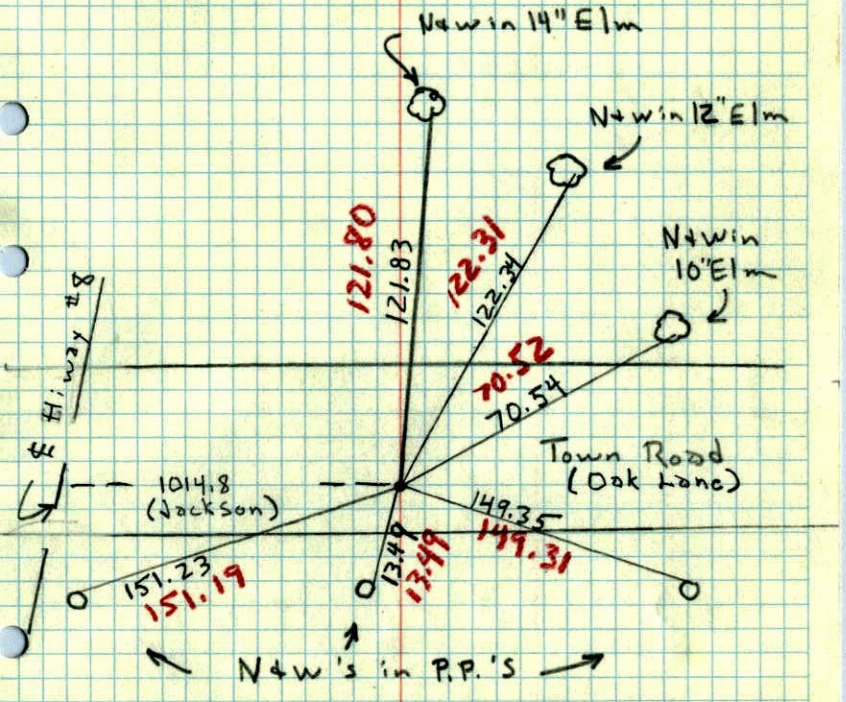 N+W in 14" Elm
N+W in 12" Elm
N+W in
10" Elm
121.80
121.83
122.31
122.34
70.52
70.54
℄ Hiway #8
Town Road
(Oak Lane)
1014.8
(Jackson)
149.35
149.31
13.49
13.49
151.23
151.19
N+W's in P.P.'s